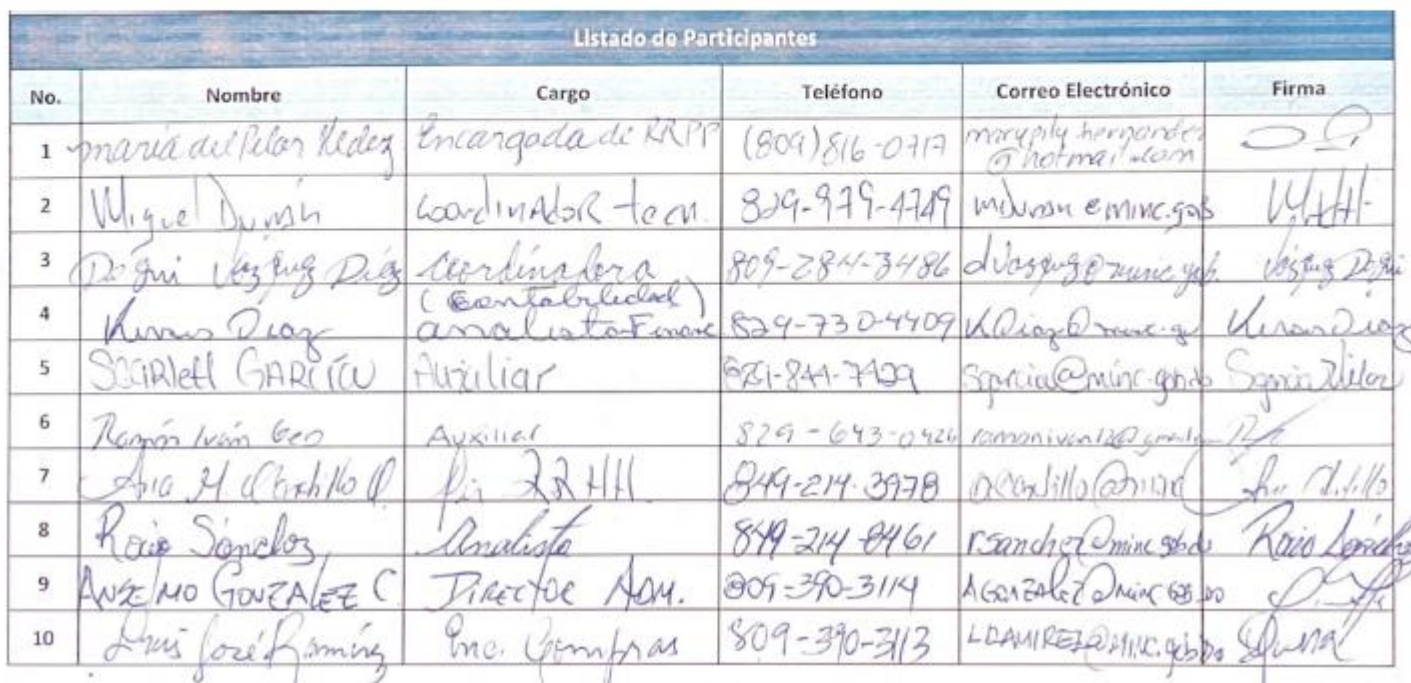 Listado de Participantes
No. Nombre Cargo Teléfono Correo Electrónico Firma
1 maria del Pilar Hedez Encargada de RRPP (809)816-0717 marypily.hernandez
@hotmail.com
2 Miguel Durán Coordinador tecn. 829-979-4749 mduran@minc.gob
3 Vázquez Díaz Coordinadora 809-284-3486 dvazquez@minc.gob.
(Contabilidad)
4 Díaz analista Financ 829-730-4409 KDiaz@minc.g
5 Scarlett García Auxiliar 829-844-7429 sgarcia@minc.gob.do
6 Ramón Iván Auxiliar 829-643-0426 ramonivan12@gmail
7 Ana M. Castillo RRHH 849-214-3978 acastillo@minc
8 Rocio Sánchez Analista 849-214-8461 rsanchez@minc.gob.do Rocio Sánchez
9 Anselmo González C. Director Adm. 809-390-3114 AGONZALEZ@minc.gob.do
10 Luis José Ramírez Enc. Compras 809-390-3113 LRAMIREZ@MINC.gob.Do